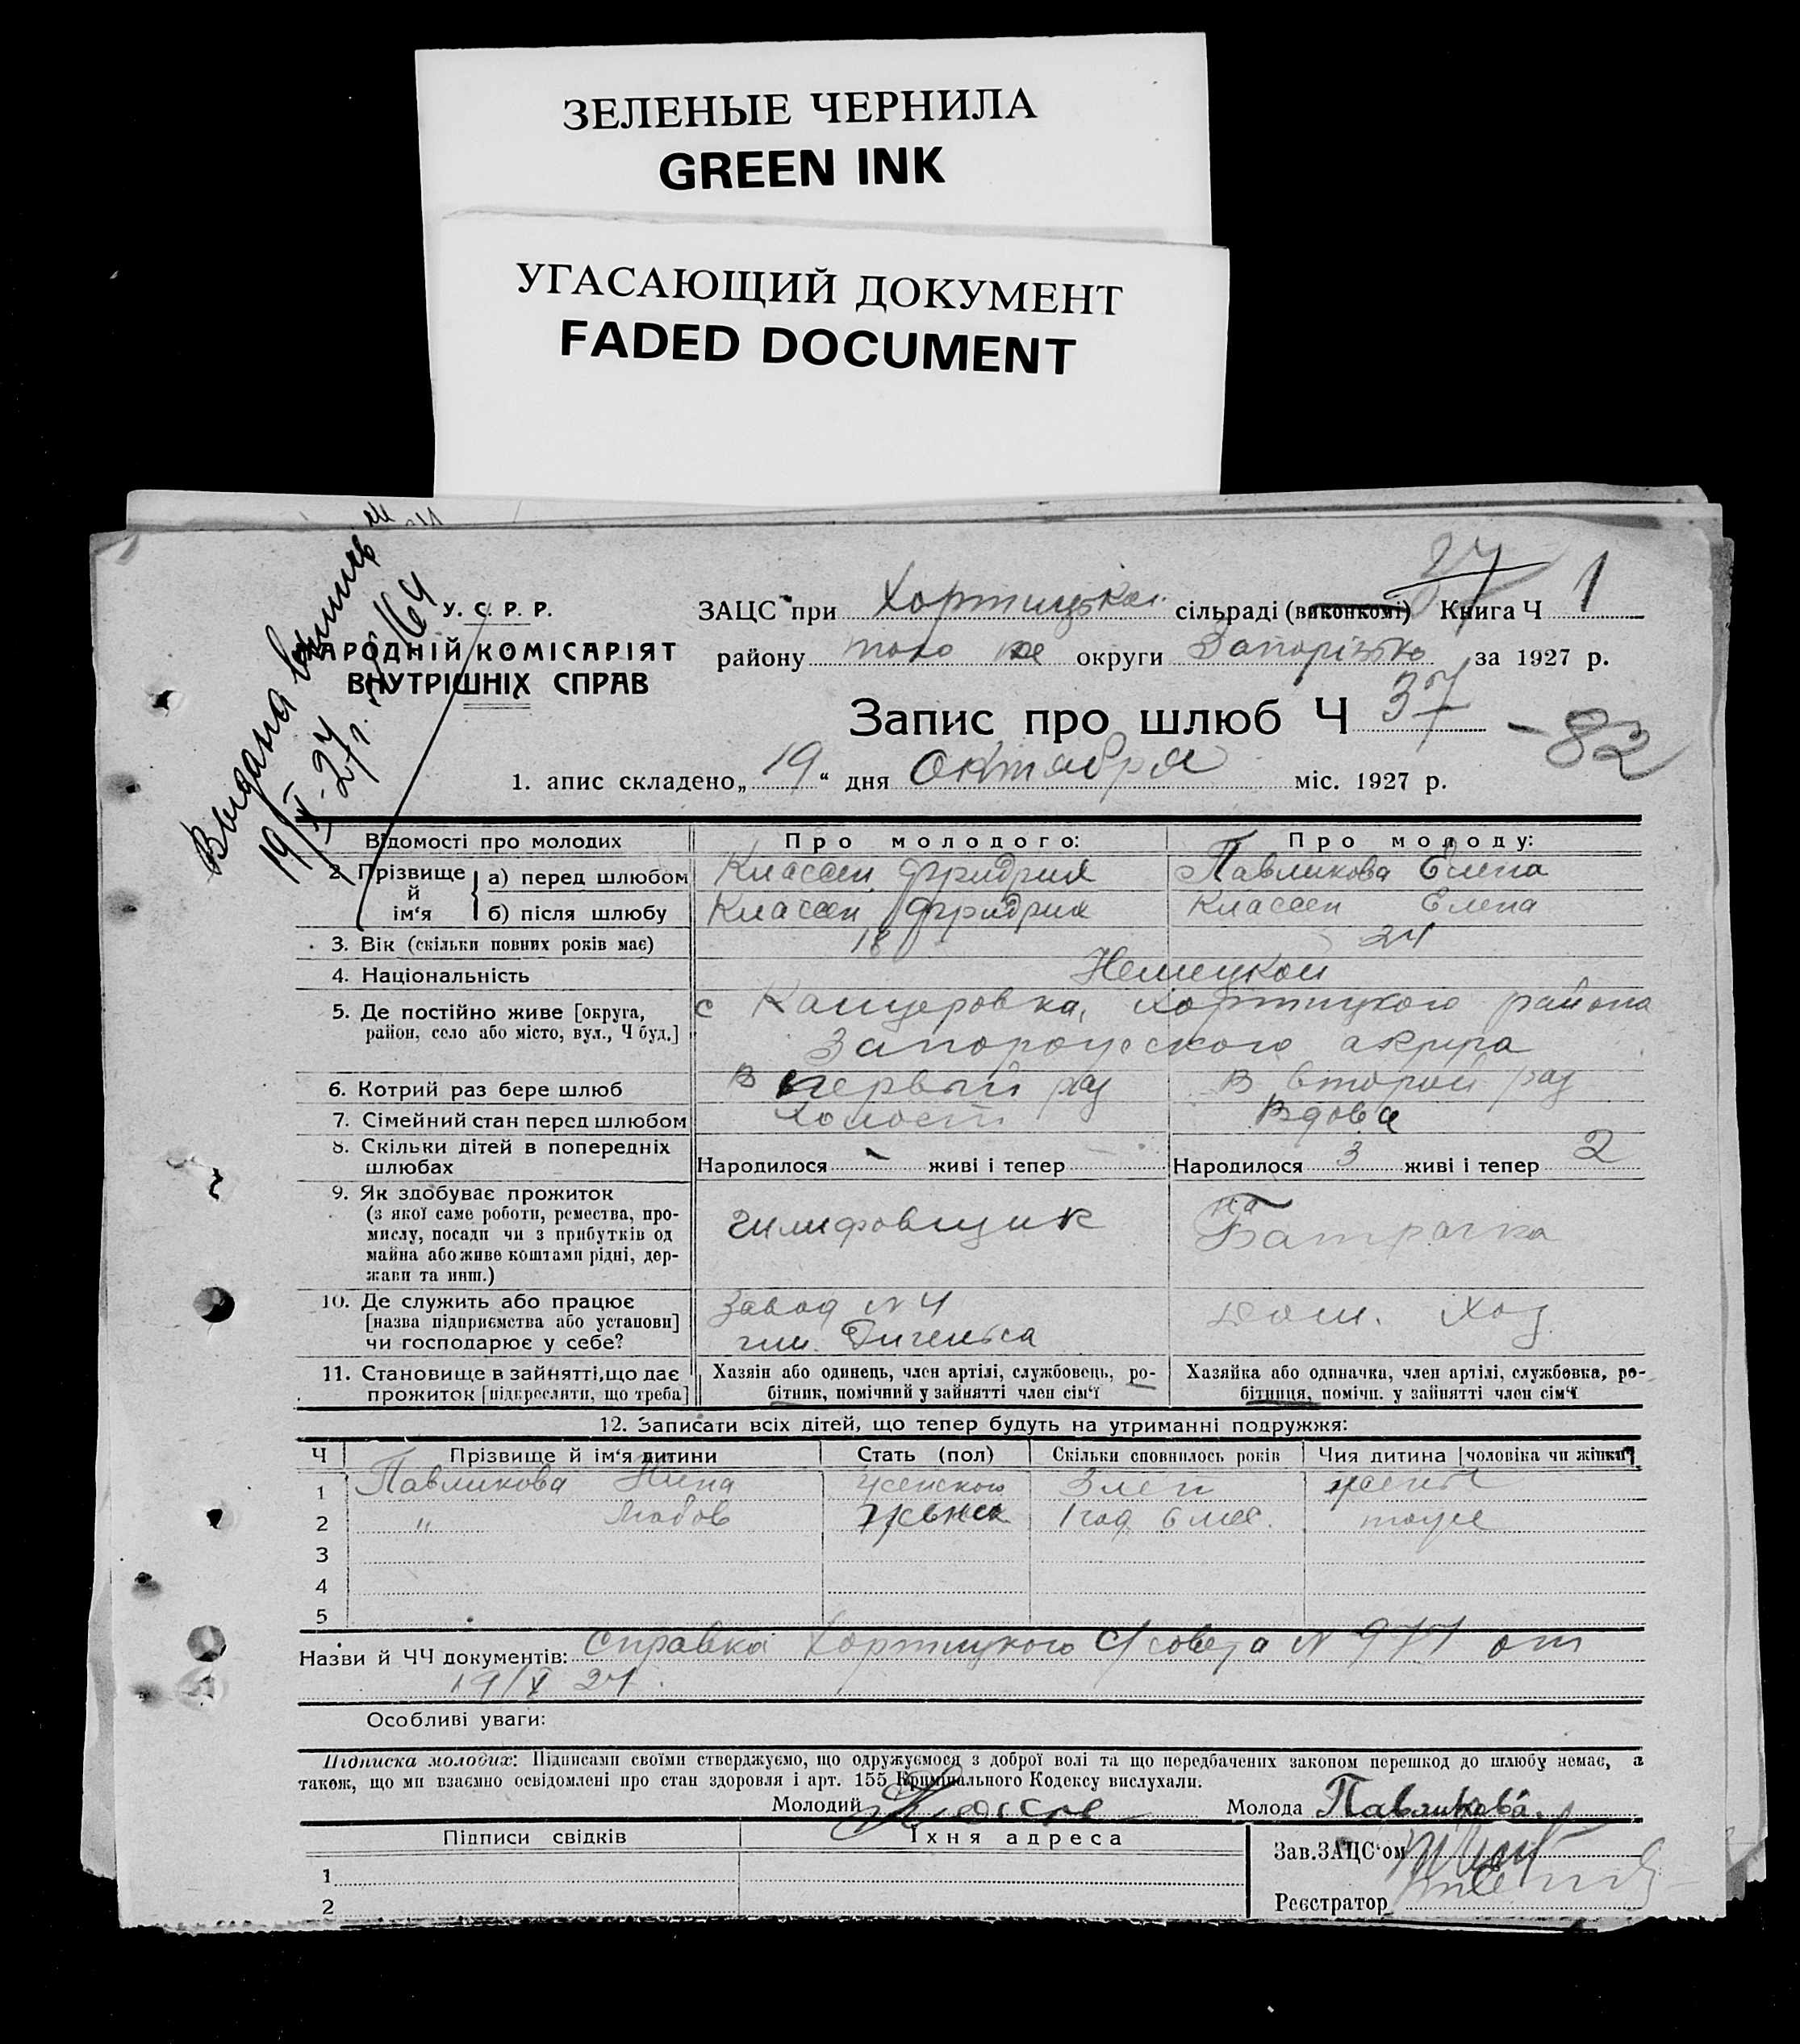 ЗЕЛЕНЫЕ ЧЕРНИЛА
GREEN INK
УГАСАЮЩИЙ ДОКУМЕНТ
FADED DOCUMENT
Выдана
19/X-27 г.
У. С. Р. Р.
НАРОДНІЙ КОМІСАРІЯТ
ВНУТРІШНІХ СПРАВ
ЗАЦС при Хортицькій сільраді (виконкомі) Книга Ч 1
району того же округи Запоріжск за 1927 р.
Запис про шлюб Ч 37 - 82
1. апис складено „19“ дня Октября міс. 1927 р.
Відомості про молодих Про молодого: Про молоду:
2. Прізвище й ім‘я а) перед шлюбом Классен Фридрих Павликова Елена
б) після шлюбу Классен Фридрих Классен Елена
3. Вік (скільки повних років має) 18 24
4. Національність Немецкой
5. Де постійно живе [округа, район, село або місто, вул., Ч буд.] с Канцеровка, Хортицкого района
Запорожского округа
6. Котрий раз бере шлюб В первый раз В второй раз
7. Сімейний стан перед шлюбом Холост Вдова
8. Скільки дітей в попередніх шлюбах Народилося - живі і тепер - Народилося 3 живі і тепер 2
9. Як здобуває прожиток
(з якої саме роботи, ремества, про-
мислу, посади чи з прибутків од
майна або живе коштами рідні, дер-
жави та инш.)
шлифовщик Батрачка
10. Де служить або працює
[назва підприємства або установи]
чи господарює у себе?
Завод N 4
им. Энгельса
Дом. Хоз
11. Становище в зайнятті, що дає
прожиток [підкреслити, що треба]
Хазяін або одинець, член артілі, службовець, ро-
бітник, помічний у зайнятті член сім‘ї
Хазяйка або одиначка, член артілі, службовка, ро-
бітниця, помічн. у зайнятті член сім‘ї
12. Записати всіх дітей, що тепер будуть на утриманні подружжя:
Ч Прізвище й ім‘я дитини Стать (пол) Скільки сповнилось років Чия дитина [чоловіка чи жінки]
1 Павликова Нина женского 3 лет жены
2 " Любов женск 1 год 6 мес. тоже
3
4
5
Назви й ЧЧ документів: Справка Хортицкого с/совета N 977 от
19/X 27.
Особливі уваги:
Підписка молодих: Підписами своїми стверджуємо, що одружуємося з доброї волі та що передбачених законом перешкод до шлюбу немає, а
також, що ми взаємно освідомлені про стан здоровля і арт. 155 Кримінального Кодексу вислухали.
Молодий Классен Молода Павликова.
Підписи свідків Їхня адреса Зав.ЗАЦС‘ом
1
2 Реєстратор